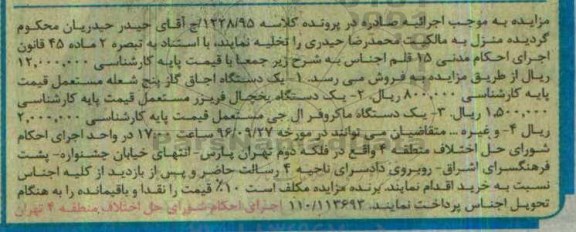 مزایده به موجب اجرائیه صادره در پرونده کلاسه ۱۲۲۸/۹۵/ج آقای حیدر حیدریان محکوم
گردیده منزل به مالکیت محمدرضا حیدری را تخلیه نمایند، با استناد به تبصره ۲ ماده ۴۵ قانون
اجرای احکام مدنی ۱۵ قلم اجناس به شرح زیر جمعا با قیمت پایه کارشناسی ۱۲,۰۰۰,۰۰۰
ریال از طریق مزایده به فروش می رسد. ۱- یک دستگاه اجاق گاز پنج شعله مستعمل قیمت
پایه کارشناسی ۸۰۰,۰۰۰ ریال. ۲- یک دستگاه یخچال فریزر مستعمل قیمت پایه کارشناسی
۱,۵۰۰,۰۰۰ ریال. ۳- یک دستگاه ماکروفر ال جی مستعمل قیمت پایه کارشناسی ۲,۰۰۰,۰۰۰
ریال ۴- و غیره ... متقاضیان می توانند در مورخه ۹۶/۰۹/۲۷ ساعت ۱۷:۰۰ در واحد اجرای احکام
شورای حل اختلاف منطقه ۴ واقع در فلکه دوم تهران پارس- انتهای خیابان جشنواره- پشت
فرهنگسرای اشراق- روبروی دادسرای ناحیه ۴ رسالت حاضر و پس از بازدید از کلیه اجناس
نسبت به خرید اقدام نمایند. برنده مزایده مکلف است ۱۰٪ قیمت را نقدا و باقیمانده را به هنگام
تحویل اجناس پرداخت نمایند. ۱۱۰/۱۱۳۶۹۳ اجرای احکام شورای حل اختلاف منطقه ۴ تهران